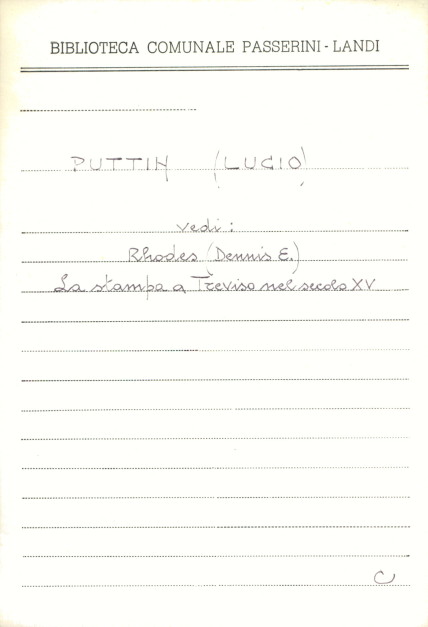 BIBLIOTECA COMUNALE PASSERINI-LANDI
PUTTIN (LUCIO)
vedi:
Rhodes (Dennis E.)
La stampa a Treviso nel secolo XV
C